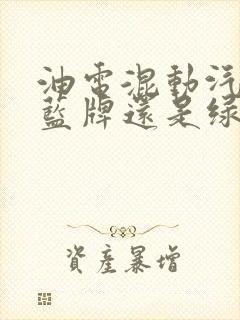 油電混動汽
藍牌還是綠
資產暴增